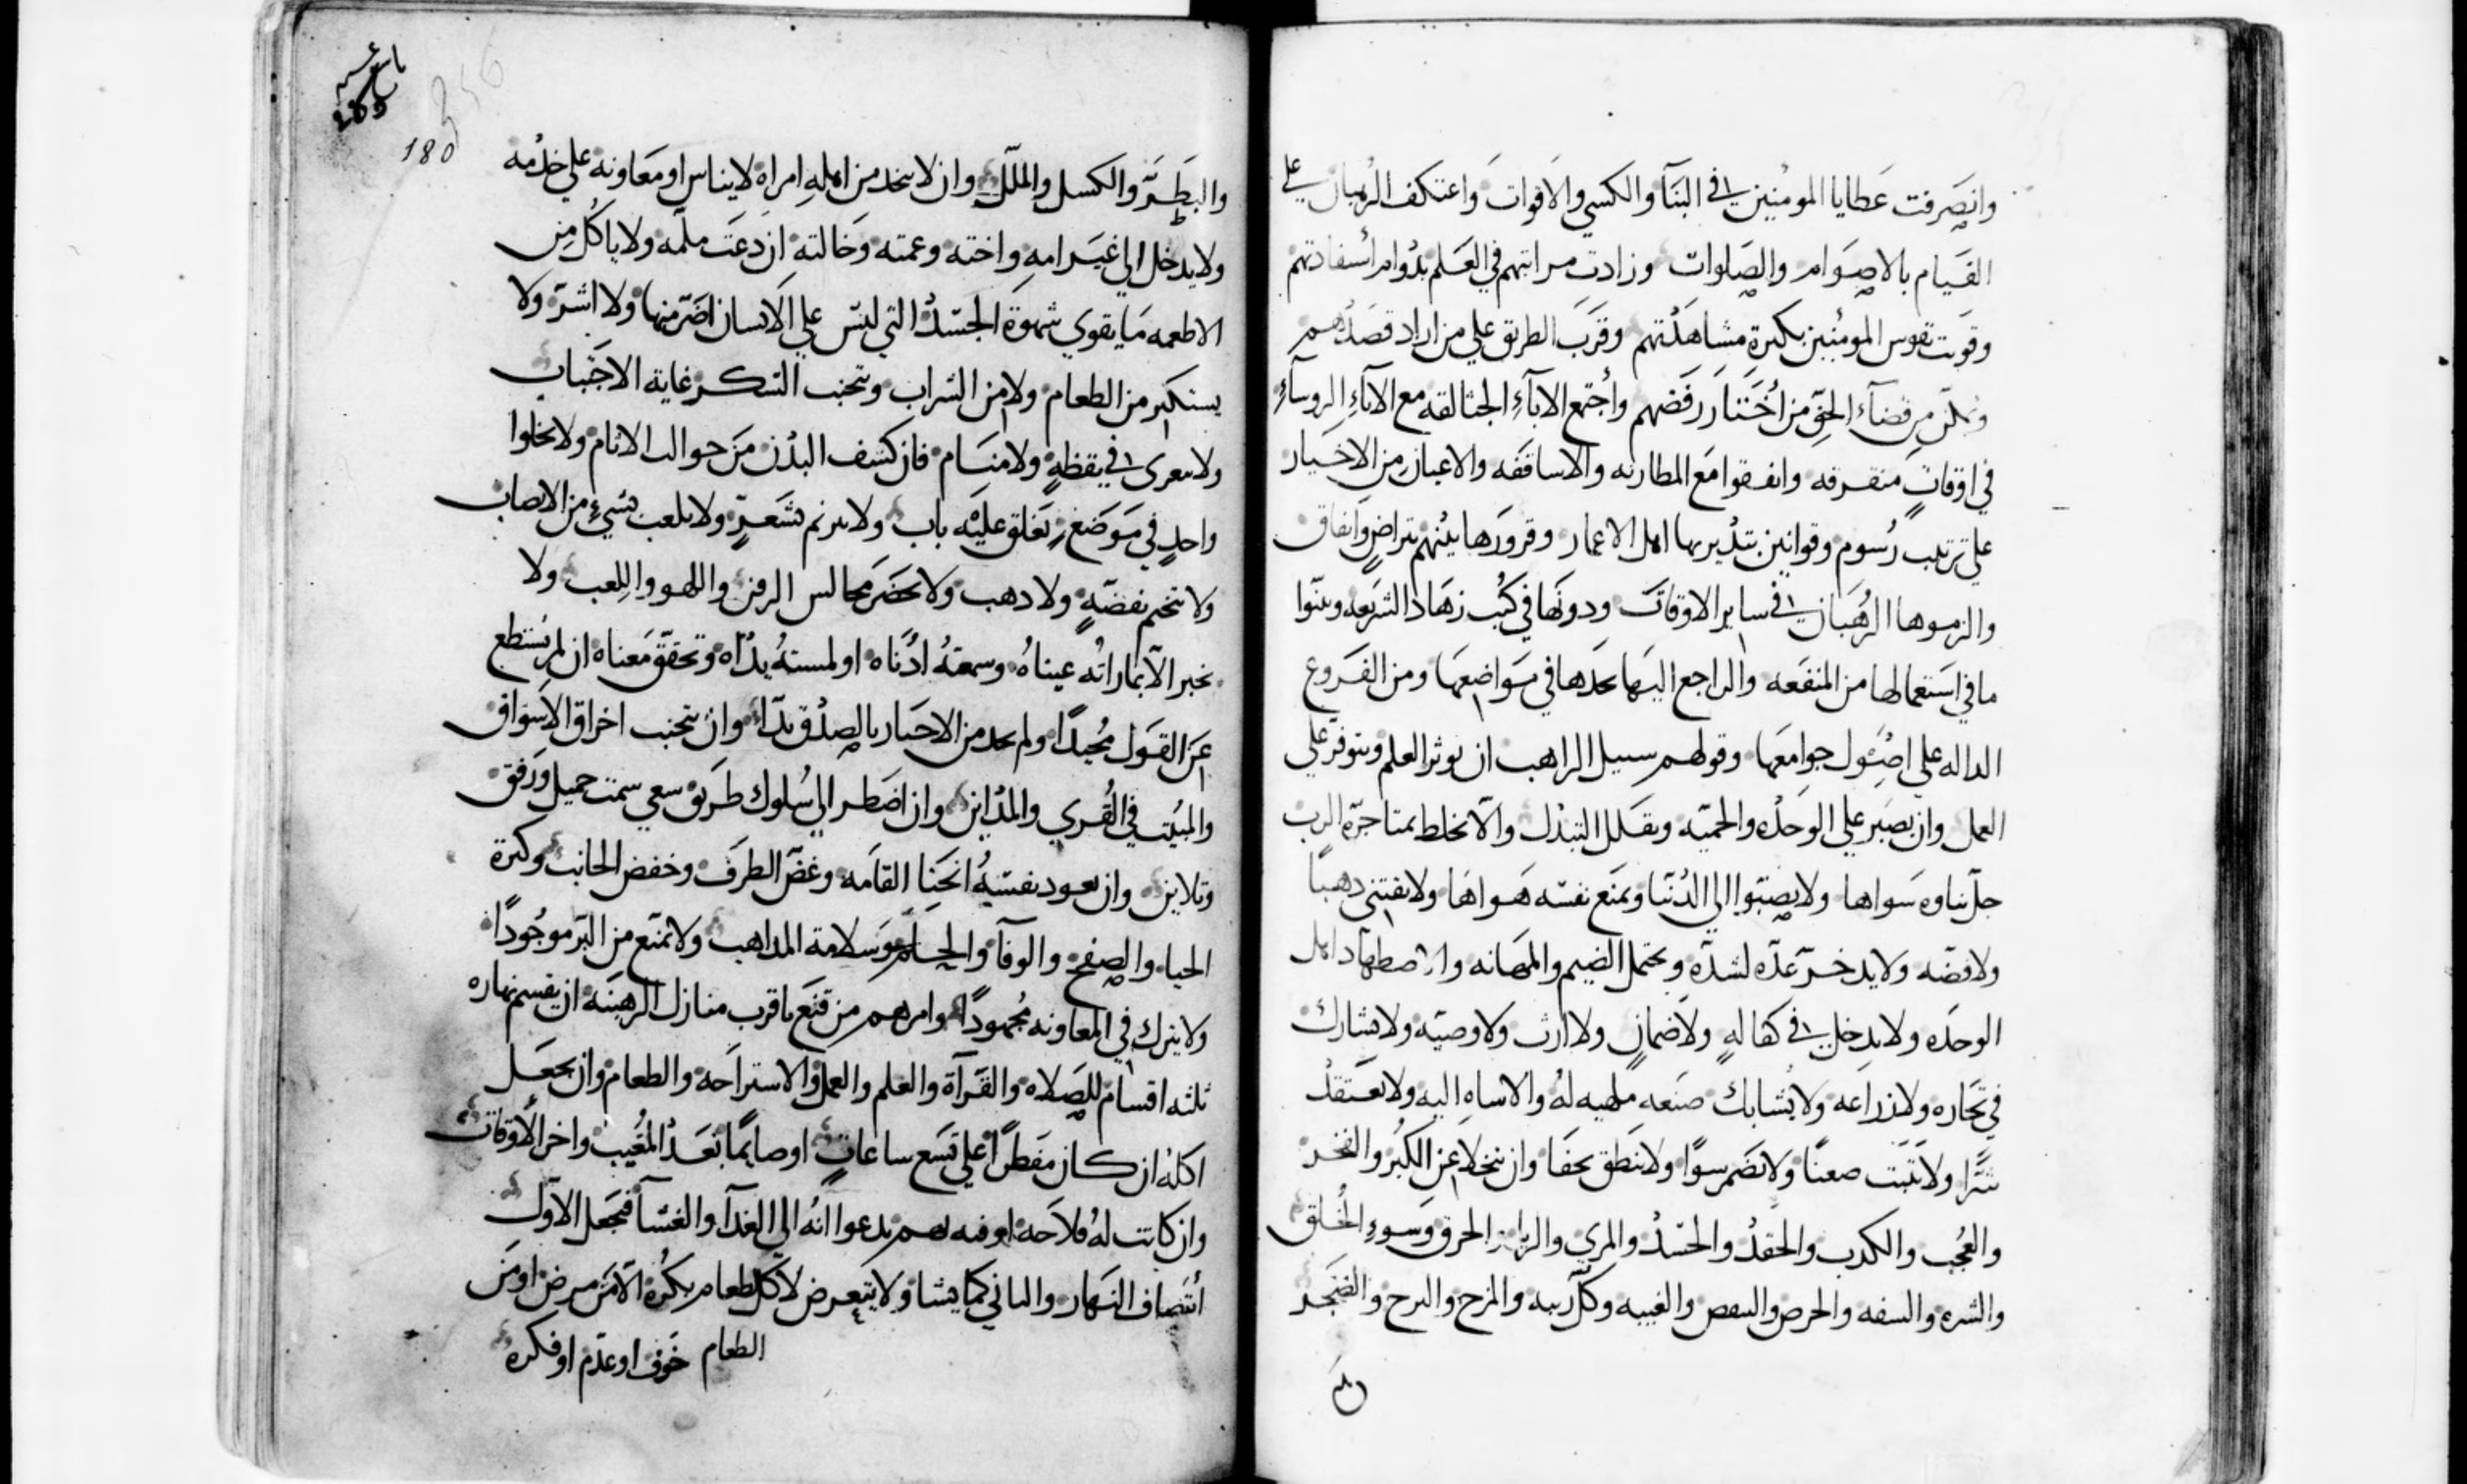 وانصرفت عطايا المومنين في البنآ والكسي والاقوات واعتكف الرهبان علي
القيام بالاصوام والصلوات وزادت مراتبهم في العلم بدوام أستفادتهم
وقويت نفوس المومنين بكثرة مشاهدتهم وقرب الطريق علي من اراد قصدهم
من قضآء الحق من أختار رفضهم وأجتمع الابآء الجثالقه مع الآبآء الروسآء
في اوقات متفرقه واتفقوا مع المطارنه والاساقفه والاعيان من الاخيار
علي ترتيب رسوم وقوانين بتدبير بها اهل الاعمار وقرروها بينهم بتراض وأتفاق
والزموها الرهبان في ساير الاوقات ودونها في كتب زهاد الشريعه وبينوا
ما في استعمالها من المنفعه والراجع اليها يجدها في مواضعها ومن الفروع
الداله علي اصول جوامعها وقولهم سبيل الراهب ان يوثر العلم ويتوفر علي
العمل وان يصبر علي الوحده والحميه ويقلل التبذل والا يخلط بمتاجرة الرب
جل ثناوه سواها ولا يصبوا الي الدنيا ويمنع نفسه هواها ولا يقتني دهبا
ولا فضه ولا يدخر عده لشده ويحتمل الضيم والمهانه والاضطهاد اهل
الوحده ولا يدخل في كفاله ولا ضمان ولا ارث ولا وصيه ولا يشارك
في تجاره ولا زراعه ولا يشابك صنعه ملهيه له والاساه اليه ولا يعتقد
شرا ولا يثبت ضغنا ولا يضمر سوا ولا ينطق بجفا وان يتخلا عن الكبر والفخر
والعجب والكدب والحقد والحسد والمري والحرق وسوء الخلق
والشره والسفه والحرص والبغض والغيبه وكل ريبه والمزح والمرح والضجر
180
والبطر والكسل والملل وان لا يتخد من اهله امراه لايناس او معاونه علي خدمه
ولا يدخل الي غير امه واخته وعمته وخالته ان دعت ملمه ولا ياكل من
الاطعمه ما يقوي شهوة الجسد التي ليس علي الانسان اضر منها ولا اشر ولا
يستكثر من الطعام ولا من الشراب ويتجنب السكر غاية الاجتناب
ولا يتعرى في يقظه ولا منام فان كشف البدن من جوالب الاثام ولا يخلوا
واحد في موضع يغلق عليه باب ولا يترنم بشعر ولا يلعب بشيء من الالعاب
ولا يتختم بفضه ولا دهب ولا يحضر مجالس الزفن واللهو واللعب ولا
يخبر الا بما راته عيناه وسمعته ادناه او لمسته يداه وتحقق معناه ان لم يستطع
عن القول محيدا ولم يجد من الاخبار بالصدق بدا وان يتجنب اخراق الاسواق
والمبيت في القري والمداين وان اضطر الي سلوك طريق سعي سمت جميل ورفق
وتلاين وان يعود نفسه انحنا القامه وغض الطرف وخفض الجانب وكثرة
الحياء والصفح والوفآ والحلم وسلامة المداهب ولا يمنع من البر موجودا
ولا يترك في المعاونه مجهودا وامرهم من قنع باقرب منازل الرهبنه ان يقسم نهاره
ثلثه اقسام للصلاه والقرآة والعلم والعمل والاستراحه والطعام وان يجعل
اكله ان كان مفطرا علي تسع ساعات او صايما بعد المغيب واخر الاوقات
وان كانت له فلاحه او فيه لهم يدعوا انه الي الغدآ والعشآ فيجعل الاول
أنتصاف النهار والثاني كما يشا ولا يتعرض لاكل طعام بكره الا من مرض او من
الطعام خوف او عدم او فكره